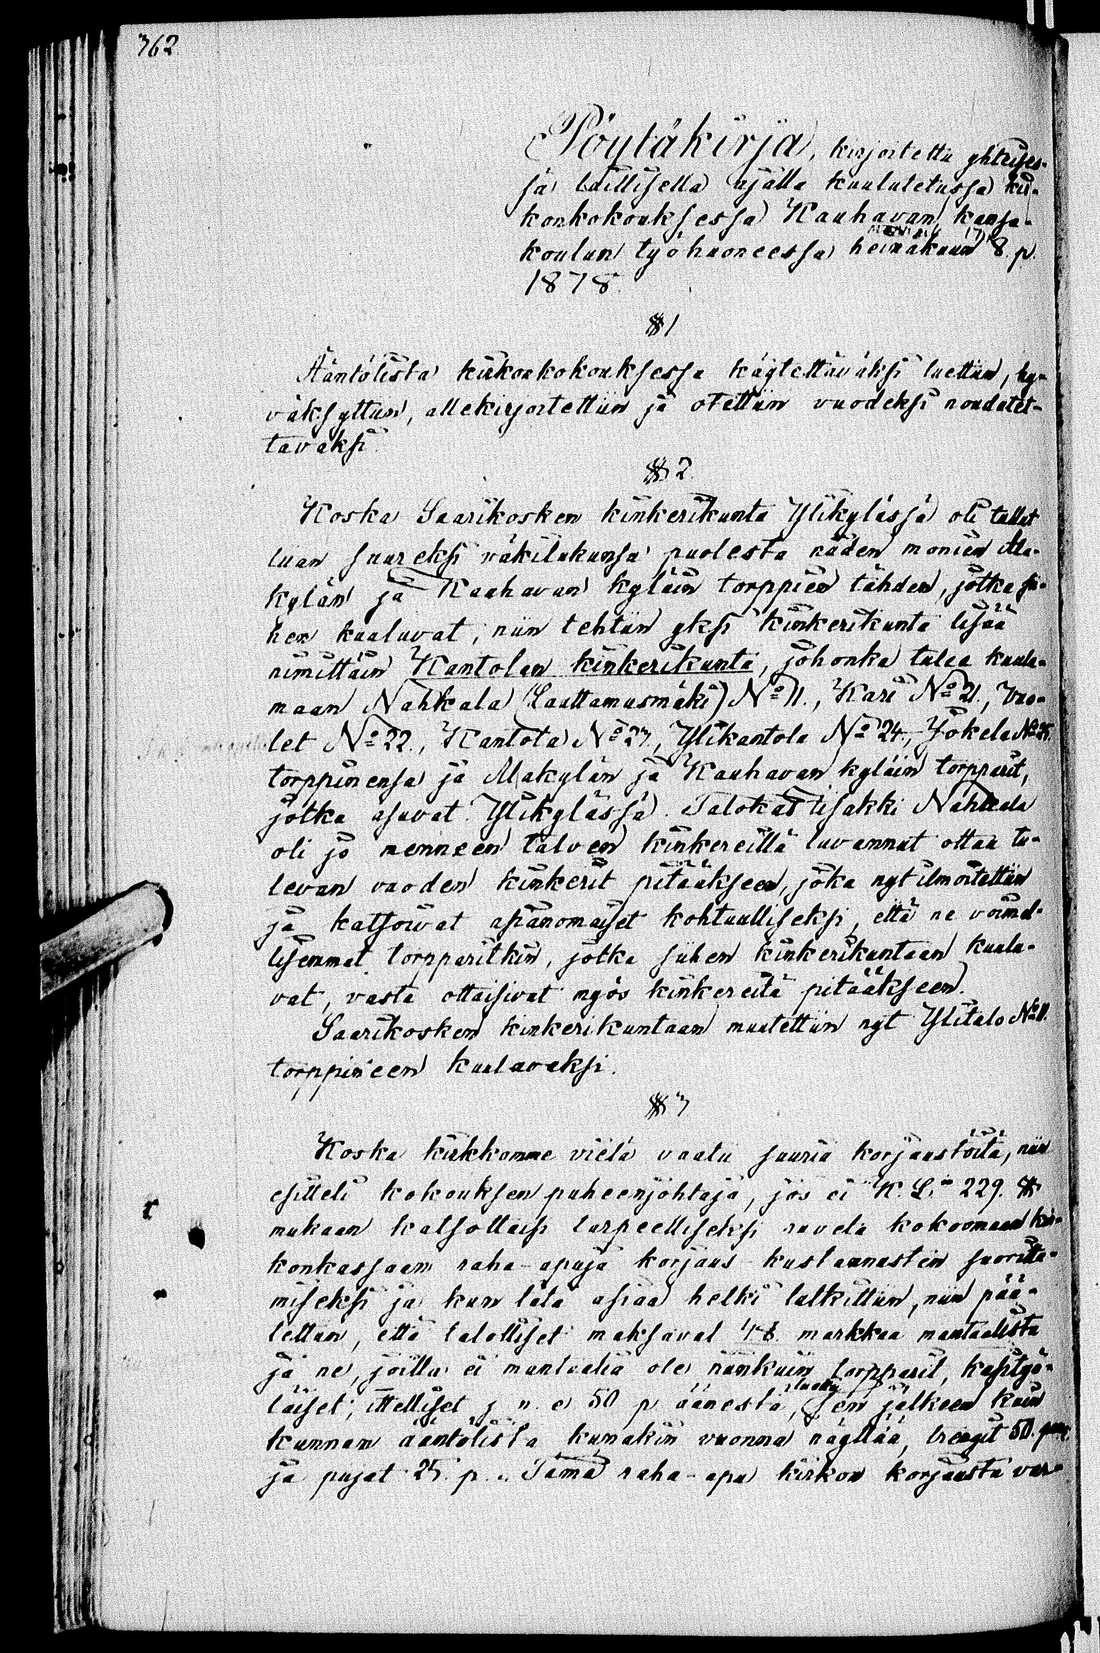 362
Pöytäkirja, kirjoitettu yhteises-
sä laillisella ajalla kuulutetussa kir-
konkokouksessa Kauhavan kansa-
koulun työhuoneessa heinäkuun 8. p.
1878.
§ 1
Ääntölista kirkonkokouksessa käytettäväksi luettiin, hy-
väksyttiin, allekirjoitettiin ja otettiin vuodeksi noudatet-
tavaksi.
§ 2.
Koska Saarikosken kinkerikunta Ylikylässä oli tullut
liian suureksi väkilukunsa puolesta näiden monien Ala-
kylän ja Kauhavan kyläin torppien tähden, jotka sii-
hen kuuluvat, niin tehtiin yksi kinkerikunta lisää
nimittäin Kantolan kinkerikunta, johonka tulee kuulu-
maan Nahkala (Laattamusmäki) No 11., Kari No 21., Vuo-
let No 22., Kantola No 27., Ylikantola No 24., Jokela No 25.
torppinensa ja Alakylän ja Kauhavan kyläin torpparit,
jotka asuvat Ylikylässä. Talokas Iisakki Nahkala
oli jo menneen talven kinkereillä luvannut ottaa tu-
levan vuoden kinkerit pitääkseen, joka nyt ilmoitettiin
ja katsoivat asianomaiset kohtuulliseksi, että ne voimal-
lisemmat torpparitkin, jotka siihen kinkerikuntaan kuulu-
vat, vasta ottaisivat myös kinkereitä pitääkseen.
Saarikosken kinkerikuntaan muutettiin nyt Ylitalo No 11.
torppineen kuuluvaksi.
§ 3
Koska kirkkomme vielä vaatii suuria korjaustöitä, niin
esitteli kokouksen puheenjohtaja, jos ei K. L:n 229. §
mukaan katsottaisi tarpeelliseksi ruveta kokoomaan kir-
konkassaan raha-apuja korjaus-kustannusten suoritta-
miseksi ja kun tätä asiaa hetki tutkittiin, niin pää-
tettiin, että talolliset maksavat 48. markkaa manttaalista
ja ne, joilla ei manttalia ole niinkuin torpparit, käsityö-
läiset, itselliset j. n. e. 50 p. äänestä, luettu sen jälkeen kuin
kunnan ääntölista kunakin vuonna näyttää, trengit 50. p:iä
ja piijat 25. p. Tämä raha-apu kirkon korjausta var-